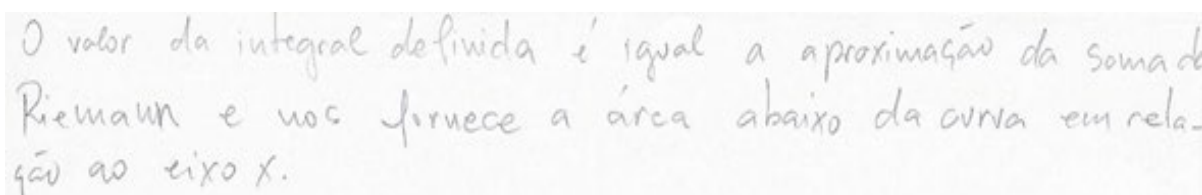 O valor da integral definida é igual a aproximação da soma de
Riemann e nos fornece a área abaixo da curva em rela-
ção ao eixo x.